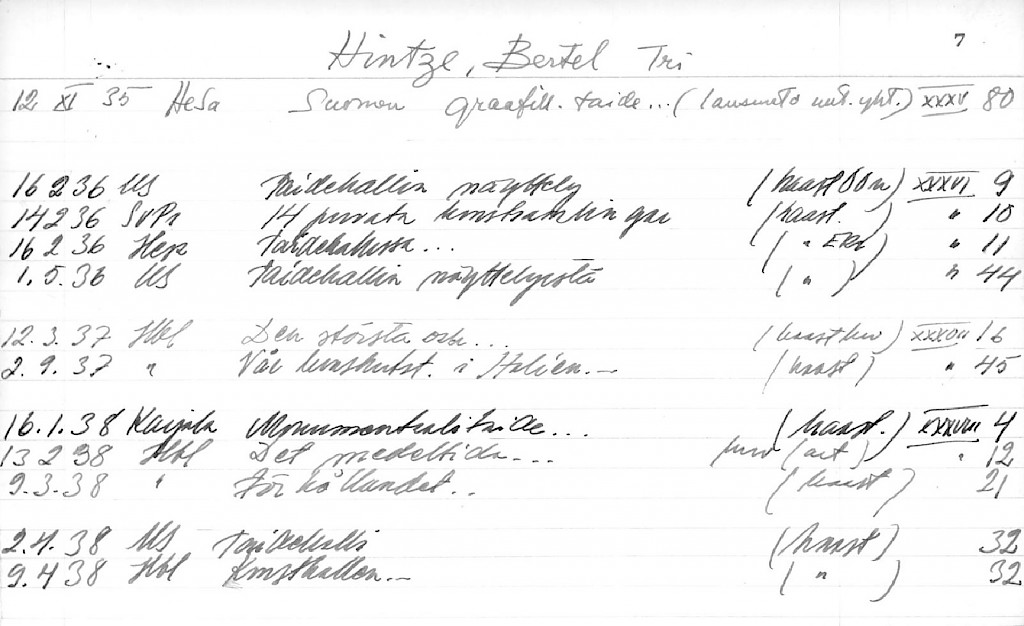 7
Hintze, Bertel Tri
12 XI 35 HeSa Suomen graafill. taide... (lausunto yht.) XXXV 80
16 2 36 US Taidehallin näyttely (haast ) XXXVI 9
14 2 36 SvPr 14 privata konstsamlingar (haast. ) " 10
16 2 36 Taidehallissa... ( " ) " 11
1.5.36 US Taidehallin näyttelyistä ( " ) " 44
12.3.37 Hbl Den största ... (haast kuv) XXXVII 16
2.9.37 " Vår konstutst. i Italien.– (haast) " 45
16.1.38 Karjala Monumentalitaide... (haast.) XXXVIII 4
13 2 38 Hbl Det medeltida... kuv (art) " 12
9.3.38 " Förhållandet.. (haast) 21
2.4.38 US Taidehalli (haast) 32
9.4 38 Hbl Konsthallen.– ( " ) 32